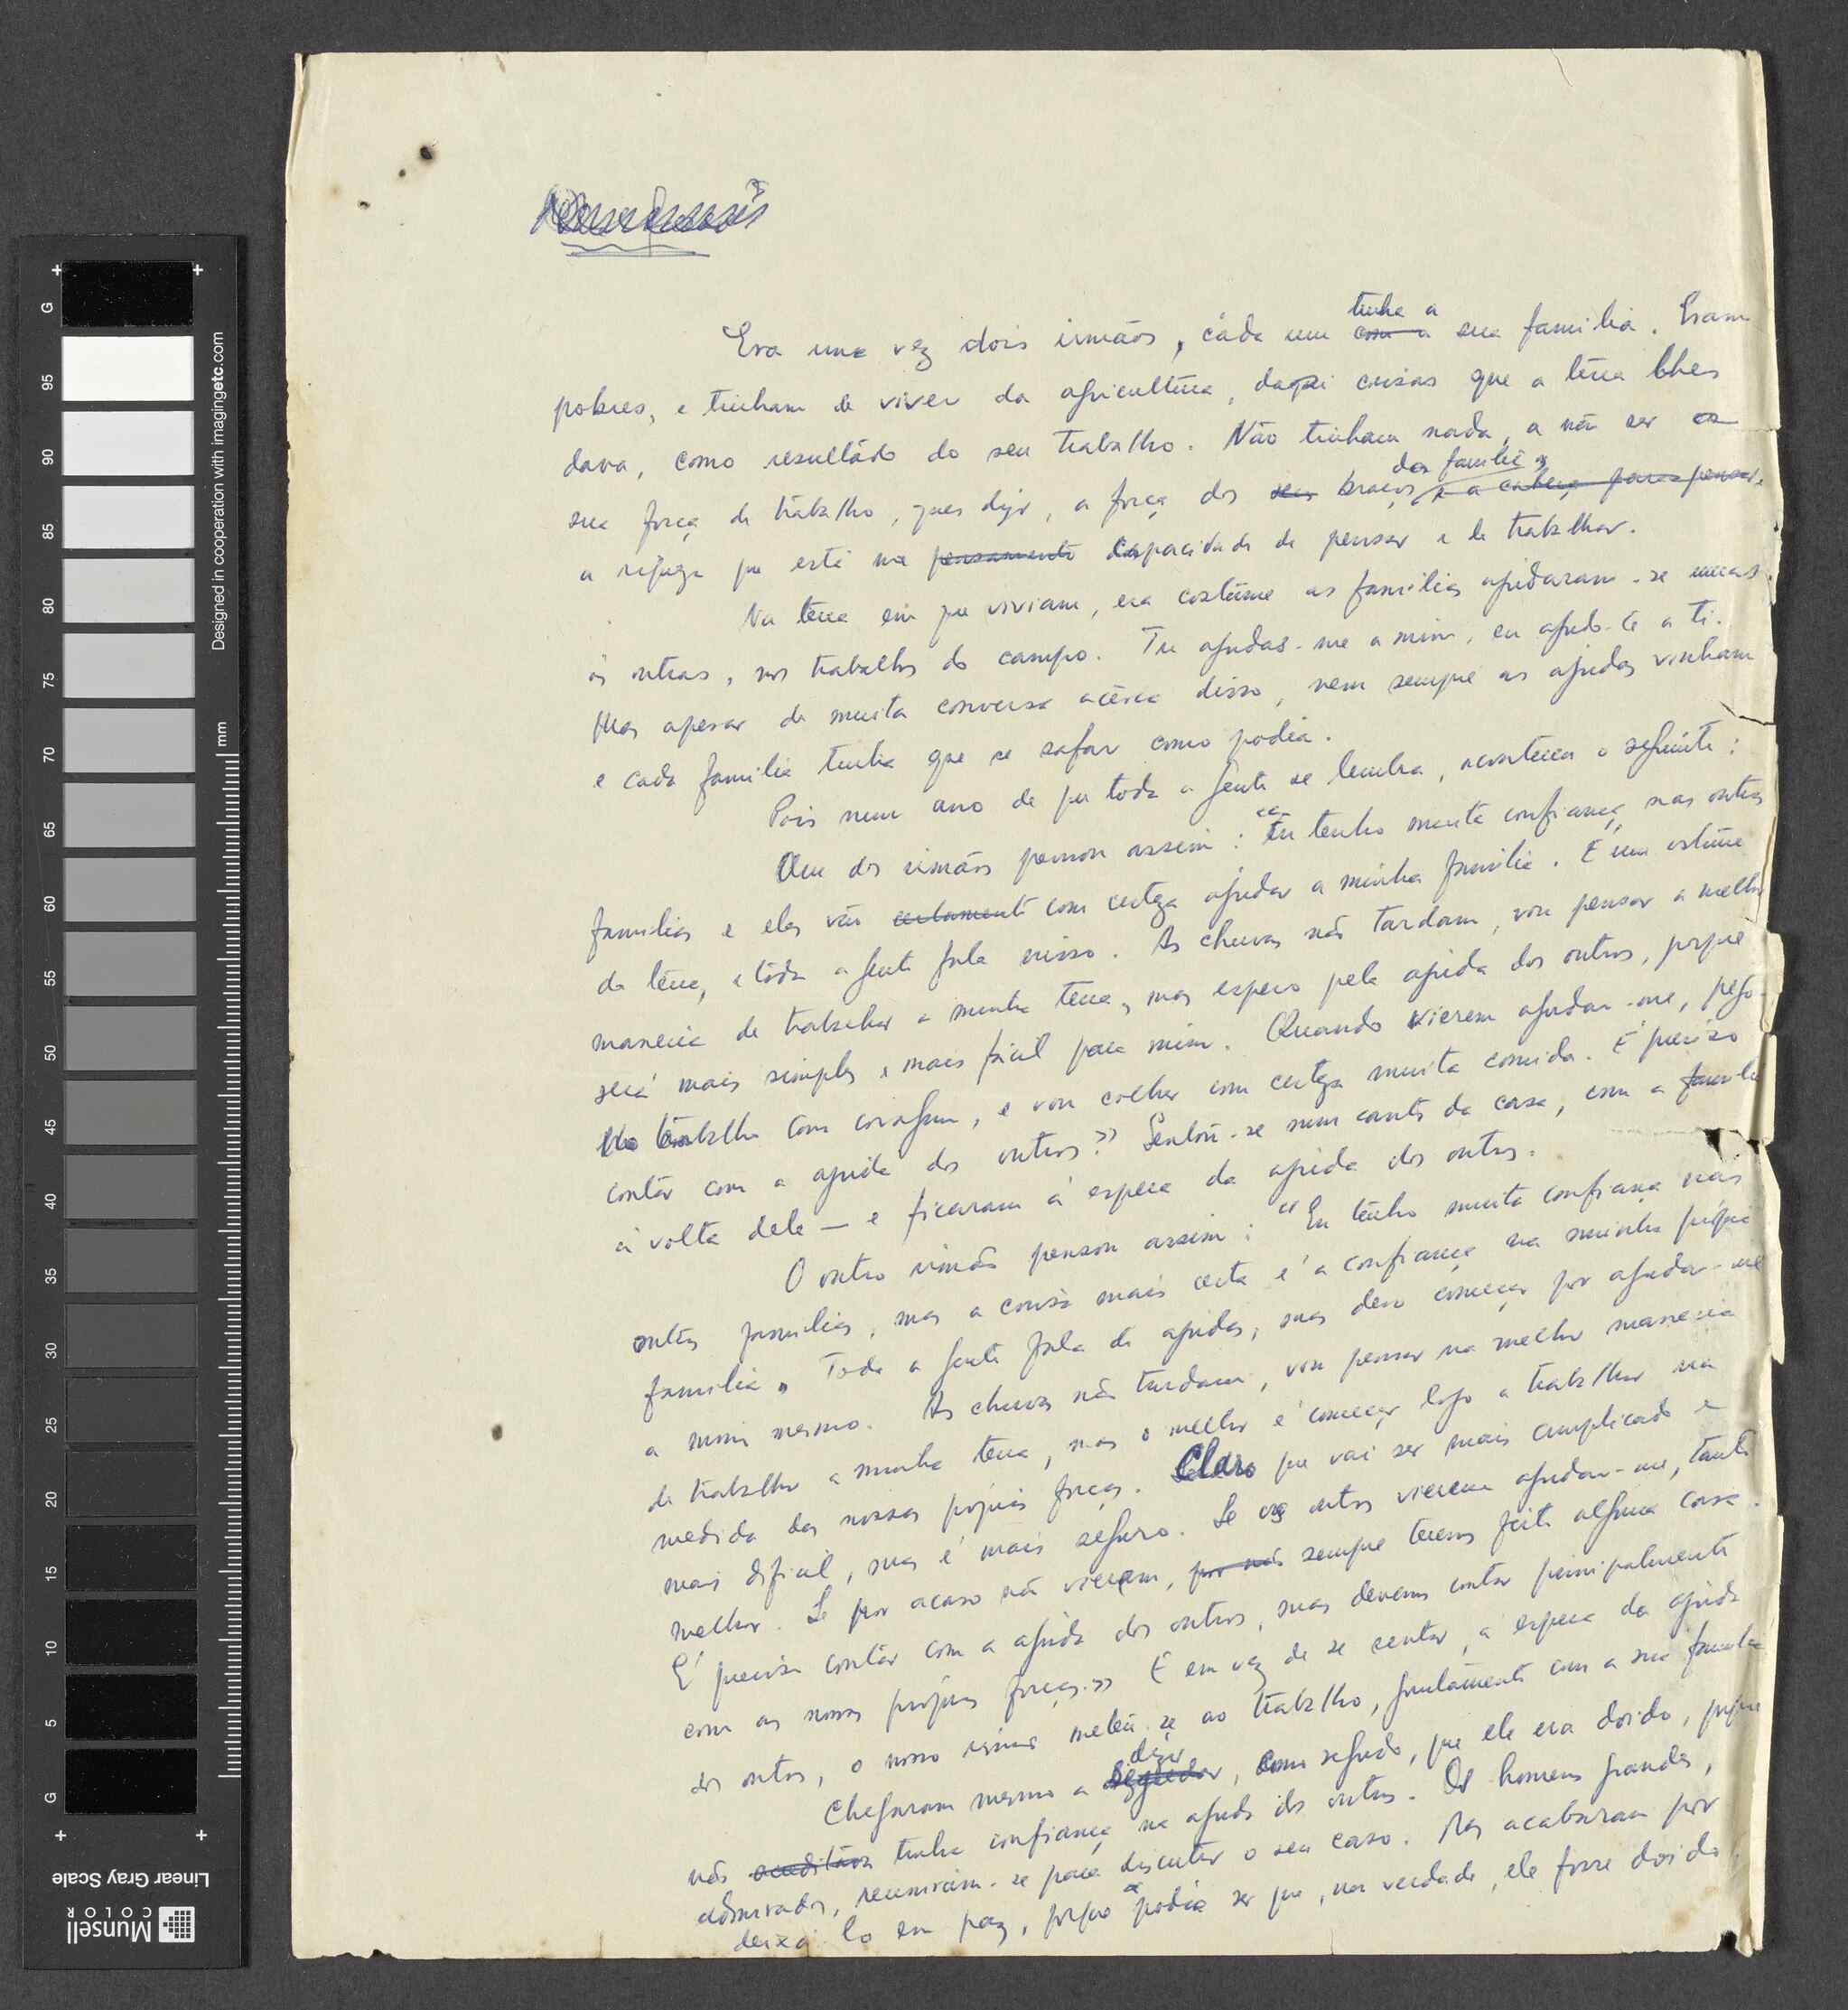 Era uma vez dois irmãos, cáda um com a tinha a sua familia. Eram
pobres, e tinham de viver da agricultura, daqui coisas que a terra lhes
dava, como resultádo do seu trabalho. Não tinham nada, a não ser a
sua força de trabalho, quer dizer, a força dos seus braços das familias e a cabeça para pensar,
a riqueza que está na pensamento capacidade de pensar e de trabalhar.
Na terra em que viviam, era costume as familias ajudaram-se umas
ás outras, nos trabalhos do campo. Tu ajudas-me a mim, eu ajudo-te a ti.
Mas apesar de muita conversa acêrca disso, nem sempre as ajudas vinham
e cada familia tinha que se safar como podia.
Pois num ano de que toda a gente se lembra, aconteceu o seguinte:
Um dos irmãos pensou assim: "Eu tenho muita confiança nas outras
familias e elas vão certamente com certeza ajudar a minha familia. É um costume
da terra, e tôda a gente fala nisso. As chuvas não tardam, vou pensar a melhor
maneira de trabalhar a minha terra, mas espero pela ajuda dos outros, porque
será mais simples e mais fácil para mim. Quando vierem ajudar-me, pego-
no trabalho com coragem, e vou colher com certeza muita comida. É preciso
contár com a ajuda dos outros." Sentou-se num canto da casa, com a familia
á volta dele — e ficaram á espera da ajuda dos outros.
O outro irmão pensou assim: "Eu tenho muita confiança nas
outras familias, mas a coisa mais certa é a confiança na minha própria
familia. Toda a gente fala de ajudas, mas devo começar por ajudar-me
a mim mesmo. As chuvas não tardam, vou pensar na melhor maneira
de trabalhar a minha terra, mas o melhor é começar logo a trabalhar na
medida das nossas próprias forças. Claro que vai ser mais complicado e
mais dificil, mas é mais seguro. Se os outros vierem ajudar-me, tanto
melhor. Se por acaso não vierem, por nós sempre teremos feito alguma coisa.
É preciso contár com a ajuda dos outros, mas devemos contar principalmente
com as nossas próprias forças." E em vez de se sentar, á espera da ajuda
dos outros, o nosso irmão meteu-se ao trabalho, juntamente com a sua familia
Chegaram mesmo a dizer, como segredo, que ele era doido, porque
não acreditava tinha confiança na ajuda dos outros. Os homens grandes,
admirados, reuniram-se para discutir o seu caso. Mas acabaram por
deixá-lo em paz, porque podia ser que, na verdade, ele fosse doido.
Munsell
COLOR
Linear Gray Scale
Designed in cooperation with imagingetc.com
mm
G
95
90
85
80
75
70
65
60
55
50
45
40
35
30
25
20
15
10
5
G